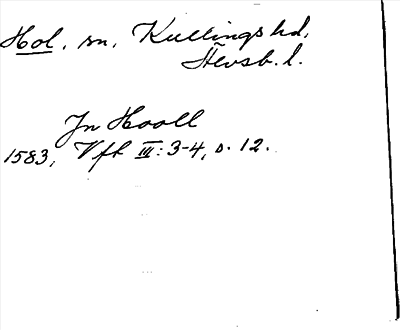 Hol, sn, Kullings hd,
Älvsb. l.
Jn Hooll
1583, Vfb III: 3-4, s. 12.